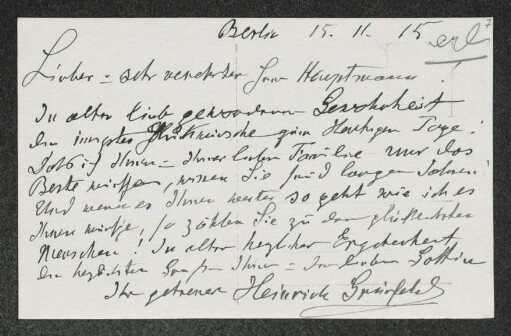 Berlin 15. 11. 15
erl
Lieber u. sehr verehrter Herr Hauptmann!
In alter lieb gewordener Gewohnheit
die innigsten Glückwünsche zum Heutigen Tage!
Daß ich Ihnen u. Ihrer lieben Familie nur das
Beste wünsche, wissen Sie seit langen Jahren!
Und wenn es Ihnen weiter so geht wie ich es
Ihnen wünsche, so zählen Sie zu den glücklichsten
Menschen! In alter herzlicher Ergebenheit
die herzlichsten Grüße Ihnen u. der lieben Gattin
Ihr getreuer Heinrich Grünfeld